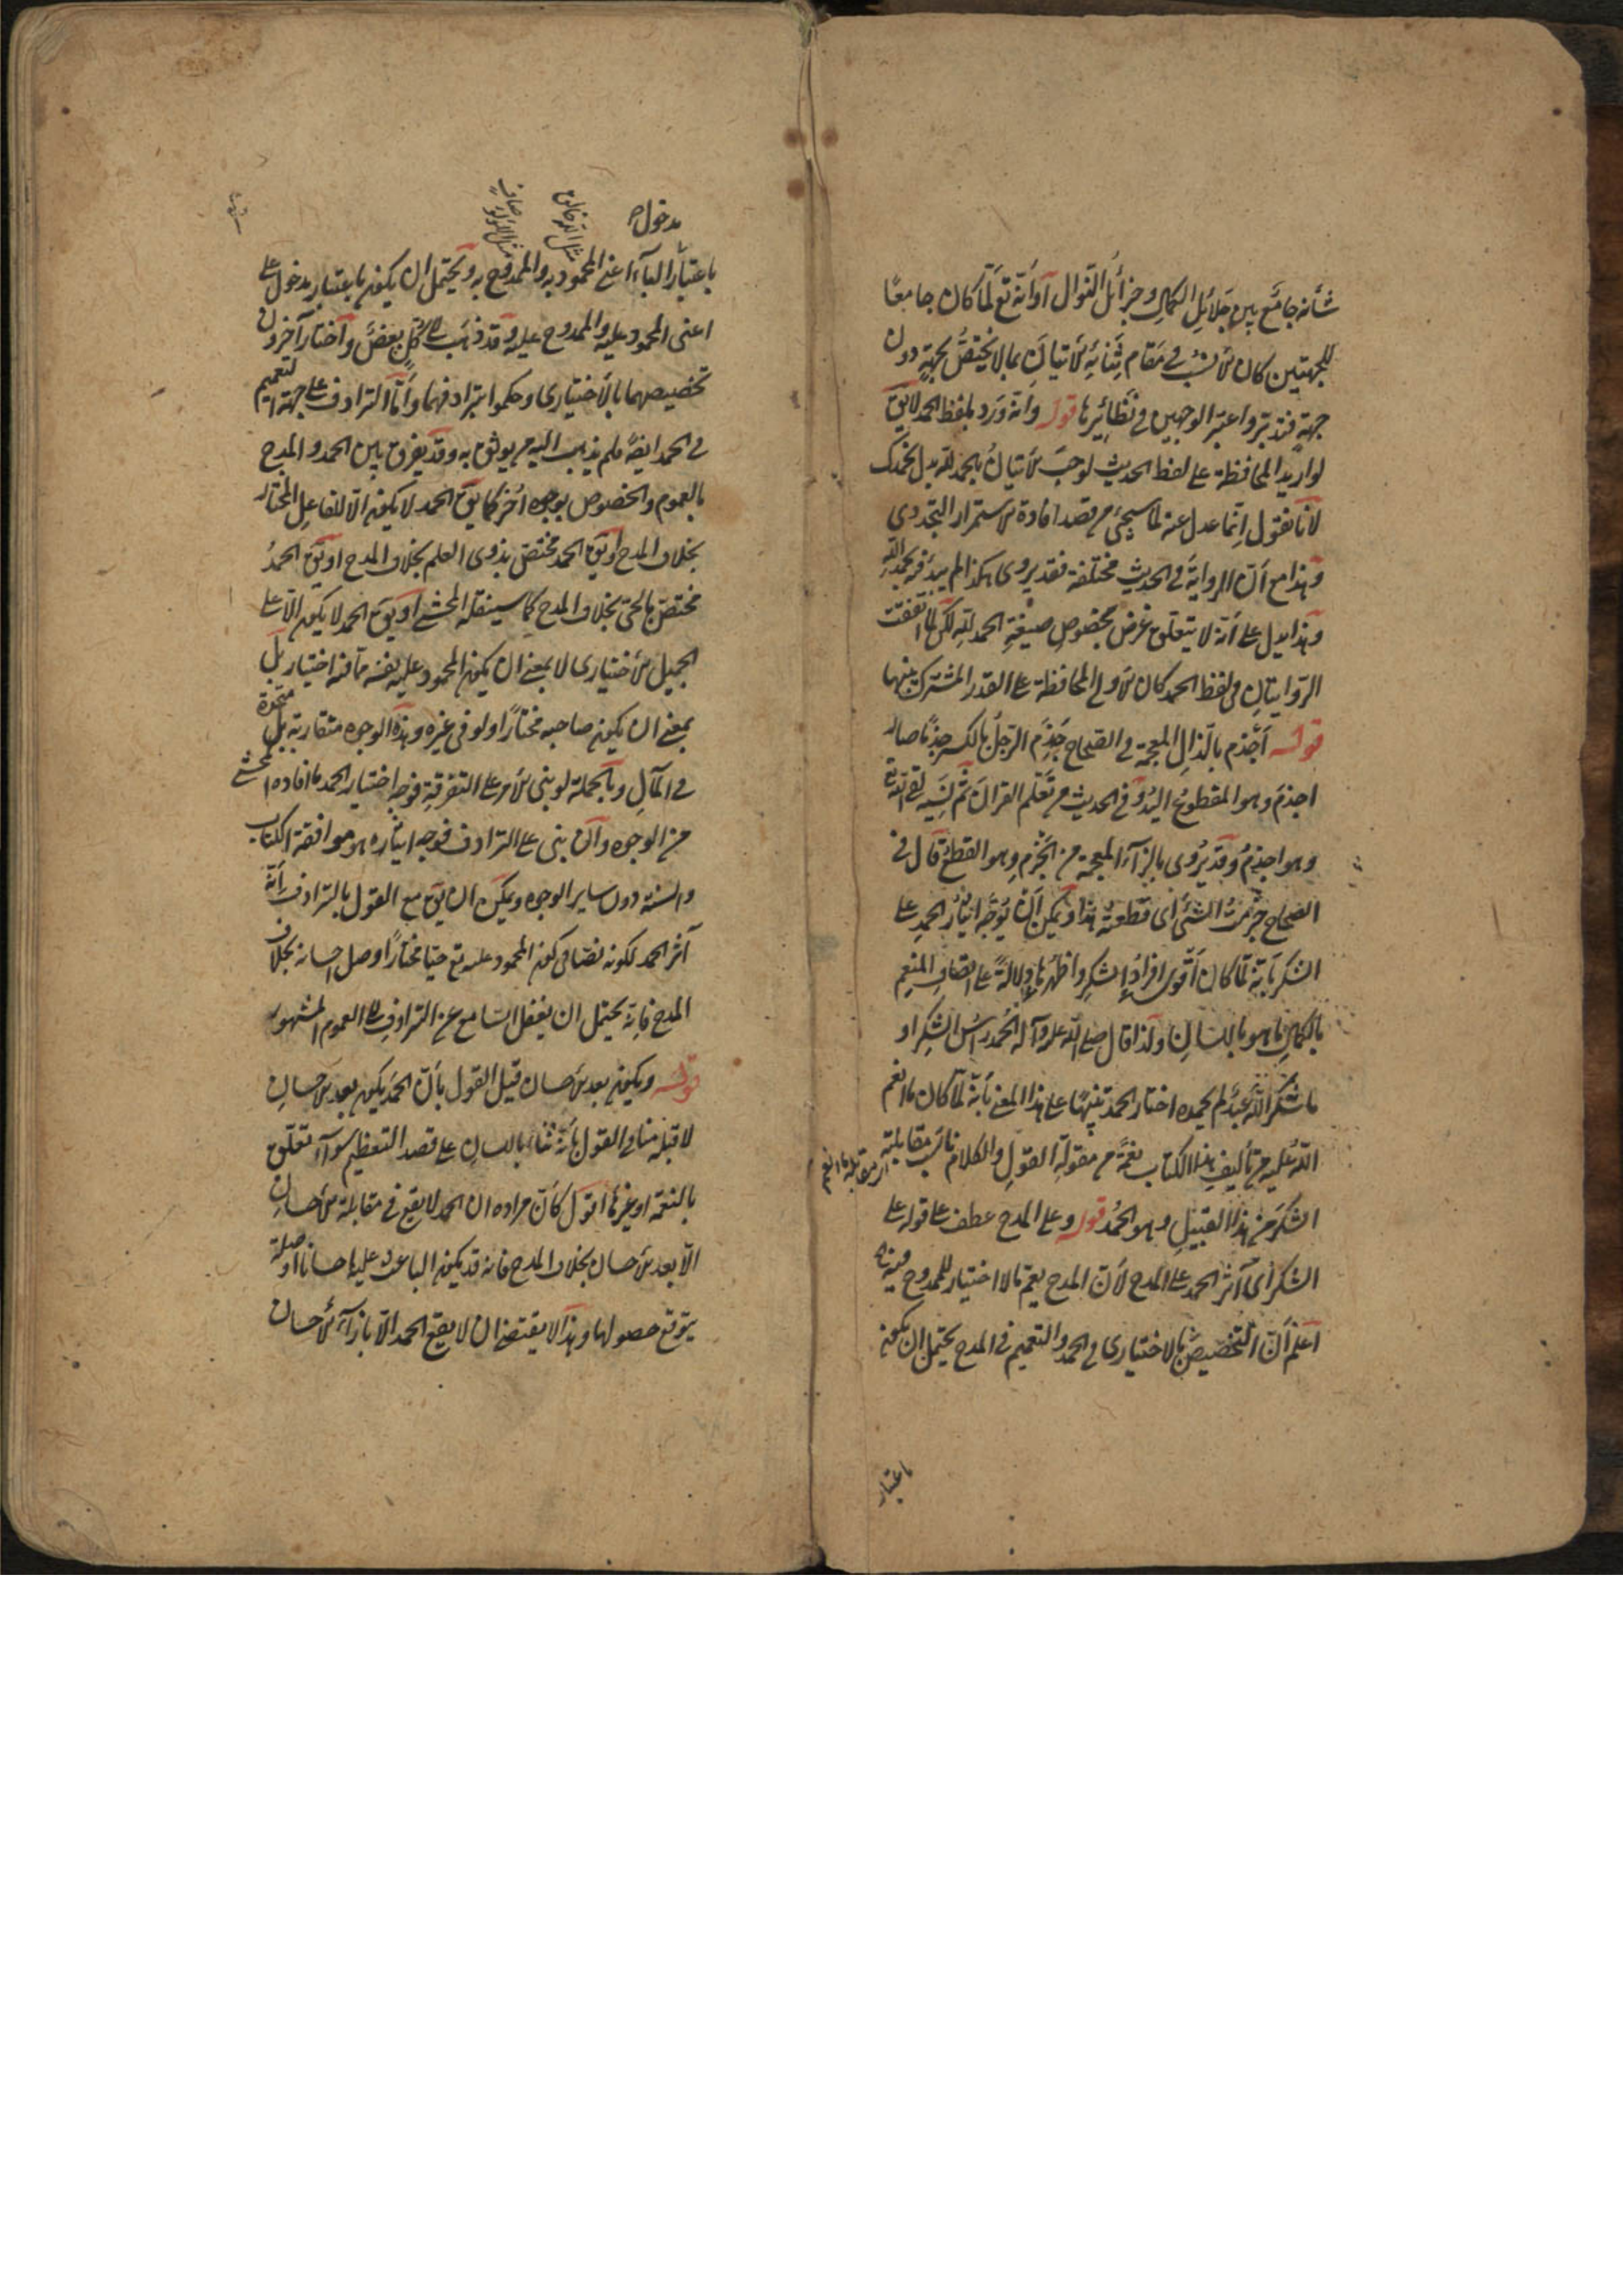 شأنه جامع بين جلائل الكمال وجزائل النوال أو أنه تع لما كان جامعًا
للجهتين كان الأنسب في مقام ثنائه الاتيان بما لا يختص بجهة دون
جهة فتدبر واعتبر الوجهين في نظائرها قوله وانه ورد بلفظ الحمد لا يق
لو اريد المحافظة على لفظ الحديث لوجب الاتيان بالحمد لله بدل نحمدك
لانا نقول انما عدل عنه لما سيجئ من قصد افادة الاستمرار التجددي
وهذا مع أن الرواية في الحديث مختلفة فقد يروى هكذا لم يبدء فيه بحمد الله
وهذا يدل على أنه لا يتعلق غرض بخصوص صيغة الحمد لله لكن لما اتفقت
الروايتان في لفظ الحمد كان الأولى المحافظة على القدر المشترك بينهما
قوله أجذم بالذال المعجمة في الصحاح جذم الرجل بالكسر جذمًا صار
اجذم وهو المقطوع اليد وفي الحديث من تعلم القرآن ثم نسيه لقي الله تع
وهو اجذم وقد يروى بالزاء المعجمة من الجزم وهو القطع قال في
الصحاح جزمت الشئ أي قطعته هذا ويمكن أن يوجه ايثار الحمد على
الشكر بأنه لما كان أقوى افراد الشكر واظهرها دلالة على اتصاف المنعم
بالكمال ما هو باللسان ولذا قال صلى الله عليه وآله الحمد رأس الشكر أو
ما شكر الله عبد لم يحمده اختار الحمد تنبيهًا على هذا المعنى بأنه لما كان ما انعم
الله عليه من تأليف هذا الكتاب نعمة من مقولة القول والكلام ناسب مقابلته
الشكر من هذا القبيل وهو الحمد قوله وعلى المدح عطف على قوله على
الشكر أي آثر الحمد على المدح لأن المدح يعم ما لا اختيار للممدوح فيه
اعلم أن التخصيص بالاختياري في الحمد والتعميم في المدح يحتمل ان يكون
باعتبار
مدخول
باعتبار الباء اعني المحمود به والممدوح به ويحتمل ان يكون باعتبار مدخول على
اعنى المحمود عليه والممدوح عليه وقد ذهب إلى كل بعض واختار آخرون
تخصيصهما بالأختياري وحكموا بترادفهما وأما الترادف على جهة التعميم
في الحمد ايضًا فلم يذهب اليه من يوثق به وقد يفرق بين الحمد والمدح
بالعموم والخصوص بوجوه أخر كما يق الحمد لا يكون الا للفاعل المختار
بخلاف المدح أو يق الحمد مختص بذوي العلم بخلاف المدح او يق الحمد
مختص بالحي بخلاف المدح كما سينقله المحشي او يق الحمد لا يكون الا على
الجميل الأختياري لا بمعنى ان يكون المحمود عليه نفسه مما فيه اختيار بل
بمعنى ان يكون صاحبه مختارًا ولو في غيره وهذه الوجوه متقاربة بل متحدة
في المآل وبالجملة لو بنى الأمر على التفرقة فوجه اختيار الحمد ما افاده المحشي
من الوجوه وان بنى على الترادف فوجه ايثاره هو موافقة الكتاب
والسنة دون ساير الوجوه ويمكن ان يق مع القول بالترادف أنه
آثر الحمد لكونه نصا في كون المحمود عليه تع حيا مختارًا وصل احسانه بخلاف
المدح فانه يحتمل ان يغفل السامع عن الترادف إلى العموم المشهور
قوله ويكون بعد الأحسان قيل القول بأن الحمد يكون بعد الأحسان
لا قبله مناف للقول بأنه ثناء باللسان على قصد التعظيم سواء تعلق
بالنعمة او بغيرها اقول كأن مراده ان الحمد لا يقع في مقابلة الأحسان
الا بعد الأحسان بخلاف المدح فانه قد يكون الباعث عليه احسانا او صلة
يتوقع حصولها وهذا لا يقتضي ان لا يقع الحمد الا بازاء الأحسان